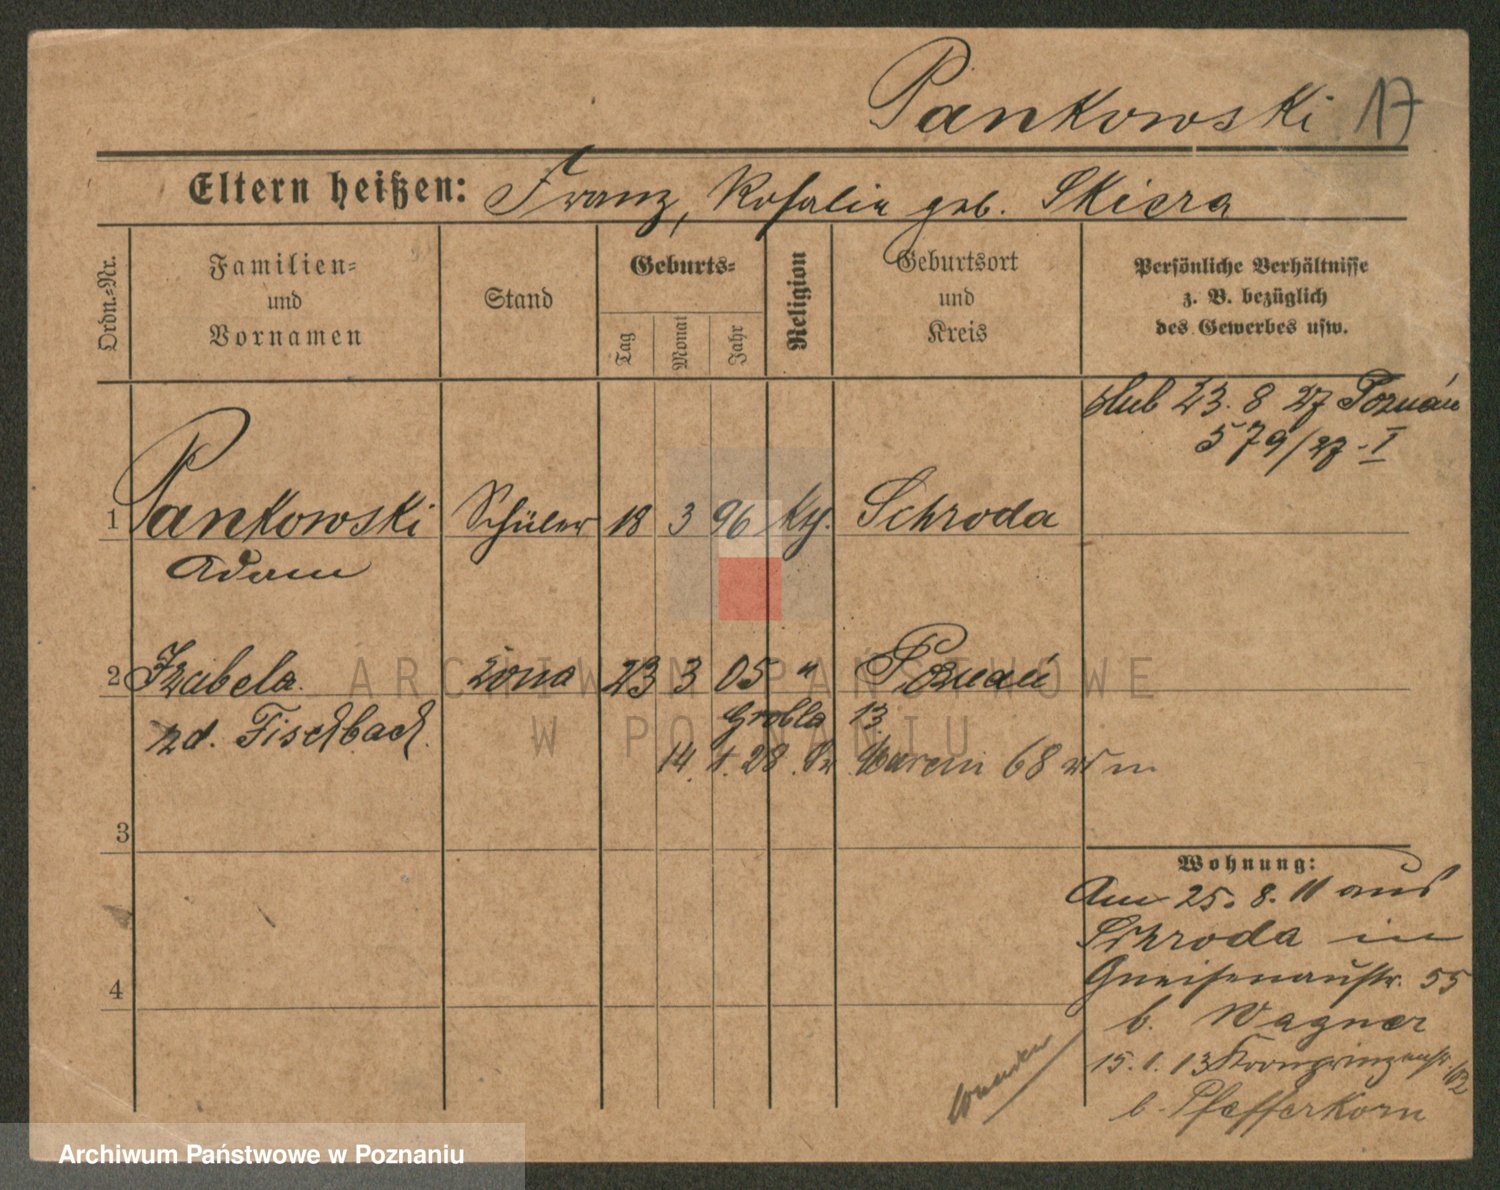 Pankowski 17
Eltern heißen: Franz, Rosalie geb. Skiera
Ordn.-Nr.
Familien-
und
Vornamen
Stand
Geburts-
Tag
Monat
Jahr
Religion
Geburtsort
und
Kreis
Persönliche Verhältnisse
z. B. bezüglich
des Gewerbes usw.
ślub 23. 8 27 Poznań
579/27 - I
1 Pankowski Schüler 18 3 96 kth. Schroda
Adam
2 Izabela żona 23 3 05 " Poznań
zd. Fischbach
Grobla 13
14. 1. 28 Św. Marcin 68
3
4
Wohnung:
Am 25. 8. 11 aus
Schroda in
Gneisenaustr. 55
b. Wagner
15. 1. 13 Kronprinzenstr. 102
b. Pfefferkorn
wenden
ARCHIWUM PAŃSTWOWE
W POZNANIU
Archiwum Państwowe w Poznaniu